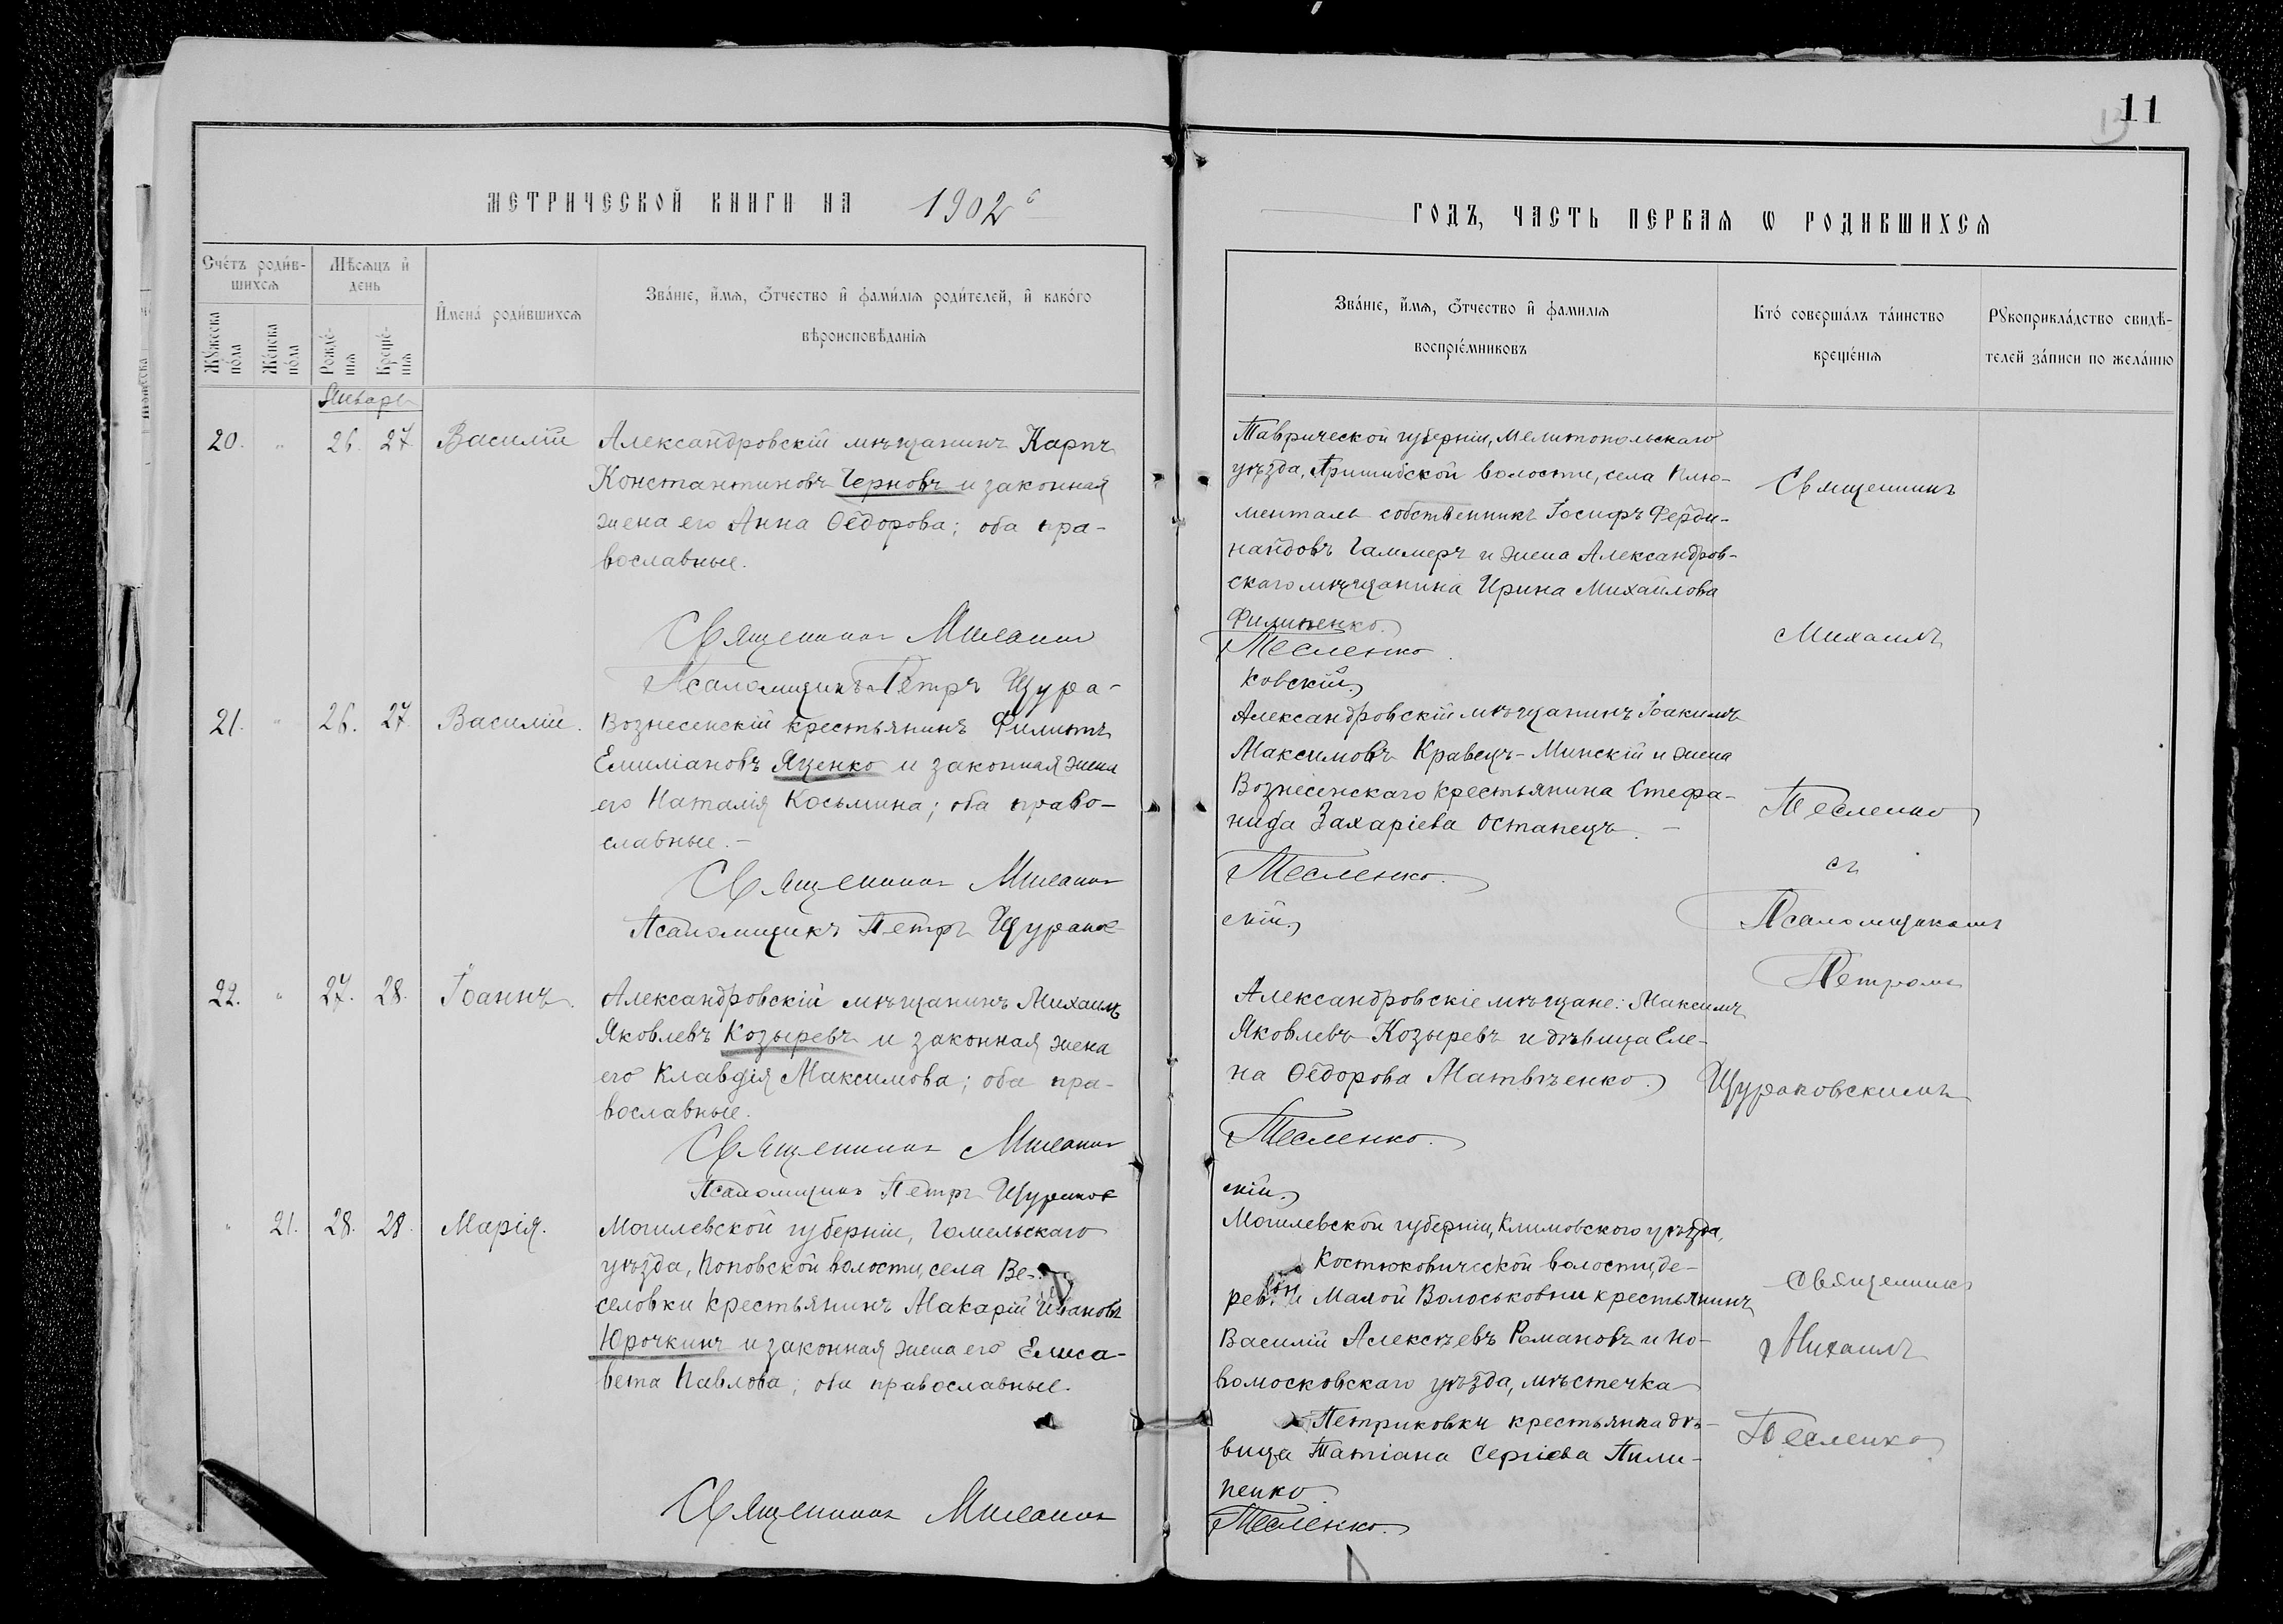 11
МЕТРИЧЕСКОЙ КНИГИ НА 1902й
ГОДЪ, ЧАСТЬ ПЕРВАЯ Ѡ РОДИВШИХСЯ
Счетъ родив-
шихся
Мѣсяцъ и
день
Мужеска
пола
Женска
пола
Рожде-
нія
Креще-
нія
Имена родившихся
Званіе, имя, отчество и фамилія родителей, и какого
вѣроисповѣданія
Званіе, имя, отчество и фамилія
воспріемниковъ
Кто совершалъ таинство
крещенія
Рукоприкладство свидѣ-
телей записи по желанію
Январь
20. " 26. 27 Василій
Александровскій мѣщанинъ Карпъ
Константиновъ Черновъ и законная
жена его Анна Ѳедорова; оба пра-
вославные.
Священникъ Михаилъ
Псаломщикъ Петръ Щура-
Таврической губерніи, Мелитопольскаго
уѣзда, Пришибской волости, села Блю-
менталь собственникъ Іосифъ Ферди-
нандовъ Гаммеръ и жена Александров-
скаго мѣщанина Ирина Михайлова
Филипенко.
Тесленко
ковскій.
Священникъ
Михаилъ
21. " 26. 27 Василій.
Вознесенскій крестьянинъ Филиппъ
Емиліановъ Яценко и законная жена
его Наталія Косьмина; оба право-
славные.-
Священникъ Михаилъ
Псаломщикъ Петръ Щураков-
Александровскій мѣщанинъ Іоакимъ
Максимовъ Кравецъ-Минскій и жена
Вознесенскаго крестьянина Стефа-
нида Захаріева Останецъ. -
Тесленко.
скій.
Тесленко
съ
Псаломщикомъ
Петромъ
22. " 27. 28. Іоаннъ.
Александровскій мѣщанинъ Михаилъ
Яковлевъ Козыревъ и законная жена
его Клавдія Максимова; оба пра-
вославные.
Священникъ Михаилъ
Псаломщикъ Петръ Щураков
Александровскіе мѣщане: Максимъ
Яковлевъ Козыревъ и дѣвица Еле-
на Ѳедорова Матвѣенко.
Тесленко.
скій.
Щураковскимъ
" 21. 28. 28. Марія.
Могилевской губерніи, Гомельскаго
уѣзда, Поповской волости, села Ве-
селовки крестьянинъ Макарій Ивановъ
Юрочкинъ и законная жена его Елиса-
вета Павлова; оба православные.
Священникъ Михаилъ
Могилевской губерніи, Климовского уѣзда,
Костюковической волости, де-
ревни Малой Волоськовни крестьянинъ
Василій Алексѣевъ Романовъ и Но-
вомосковскаго уѣзда, мѣстечка
Петриковки крестьянка дѣ-
вица Татіана Сергіева Пили-
пенко.
Тесленко.
Священникъ
Михаилъ
Тесленко